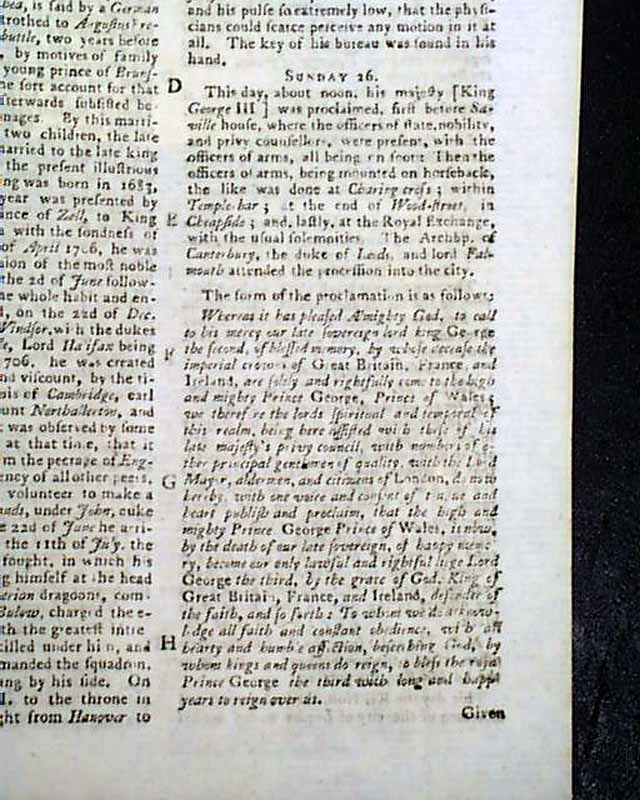 bea, is said by a German
trothed to Augustus re-
buttle, two years before
, by motives of family
young prince of Bruns-
he fort account for that
fterwards subsisted be-
nages. By this marri-
two children, the late
married to the late king
the present illustrious
ng was born in 1683,
year was presented by
ance of Zell, to King
a with the fondness of
of April 1706, he was
sion of the most noble
the 2d of June follow-
he whole habit and en-
d, on the 22d of Dec.
Windsor, with the dukes
Lord Halifax being
706, he was created
nd viscount, by the ti-
is of Cambridge, earl
ount Northallerton, and
t was observed by some
at that time, that it
m the peerage of Eng-
ency of all other peers.
volunteer to make a
ands, under John, duke
e 22d of June he arri-
the 11th of July, the
fought, in which his
g himself at the head
erian dragoons, com-
Bulow, charged the e-
th the greatest intre
killed under him, and
manded the squadron,
ng by his side. On
I. to the throne in
ght from Hanover to
D
E
F
G
H
and his pulse so extremely low, that the physi-
cians could scarce perceive any motion in it at
all. The key of his bureau was found in his
hand.
SUNDAY 26.
This day, about noon, his majesty [King
George III] was proclaimed, first before Sa-
ville house, where the officers of state, nobility,
and privy counsellors, were present, with the
officers of arms, all being on foot: Then the
officers of arms, being mounted on horseback,
the like was done at Charing-cross; within
Temple-bar; at the end of Wood-street, in
Cheapside; and, lastly, at the Royal Exchange,
with the usual solemnities. The Archbp. of
Canterbury, the duke of Leeds, and lord Fal-
mouth attended the procession into the city.
The form of the proclamation is as follows:
Whereas it has pleased Almighty God, to call
to his mercy our late sovereign lord king George
the second, of blessed memory, by whose decease the
imperial crowns of Great Britain, France, and
Ireland, are solely and rightfully come to the high
and mighty Prince George, Prince of Wales;
we therefore the lords spiritual and temporal of
this realm, being here assisted with these of his
late majesty's privy council, with numbers of o-
ther principal gentlemen of quality, with the Lord
Mayor, aldermen, and citizens of London, do now
hereby, with one voice and consent of tongue and
heart publish and proclaim, that the high and
mighty Prince George Prince of Wales, is now,
by the death of our late sovereign, of happy memo-
ry, become our only lawful and rightful liege Lord
George the third, by the grace of God, King of
Great Britain, France, and Ireland, defender of
the faith, and so forth: To whom we do acknow-
ledge all faith and constant obedience, with all
hearty and humble affection, beseeching God, by
whom kings and queens do reign, to bless the royal
Prince George the third with long and happy
years to reign over us.
Given